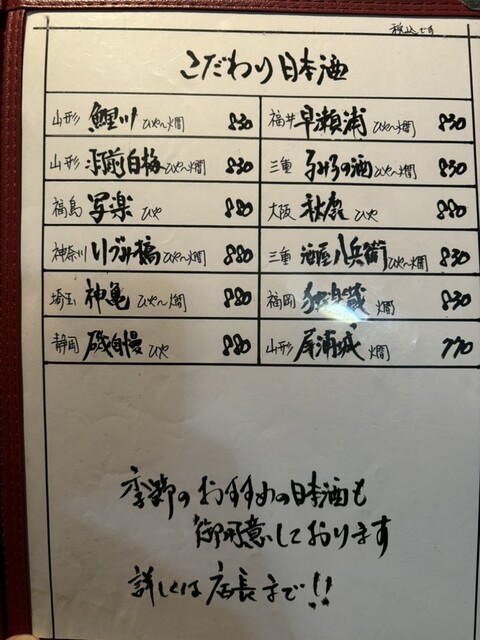 税込です
こだわり日本酒
山形 鯉川 ひや〜燗 830
福井 早瀬浦 ひや〜燗 830
山形 羽前白梅 ひや〜燗 830
三重 るみ子の酒 ひや〜燗 830
福島 写楽 ひや 880
大阪 秋鹿 ひや 880
神奈川 いづみ橋 ひや〜燗 880
三重 酒屋八兵衛 ひや〜燗 830
埼玉 神亀 ひや〜燗 880
福岡 独楽蔵 燗 830
静岡 磯自慢 ひや 880
山形 尾浦城 燗 770
季節のおすすめの日本酒も
御用意しております
詳しくは店長まで!!